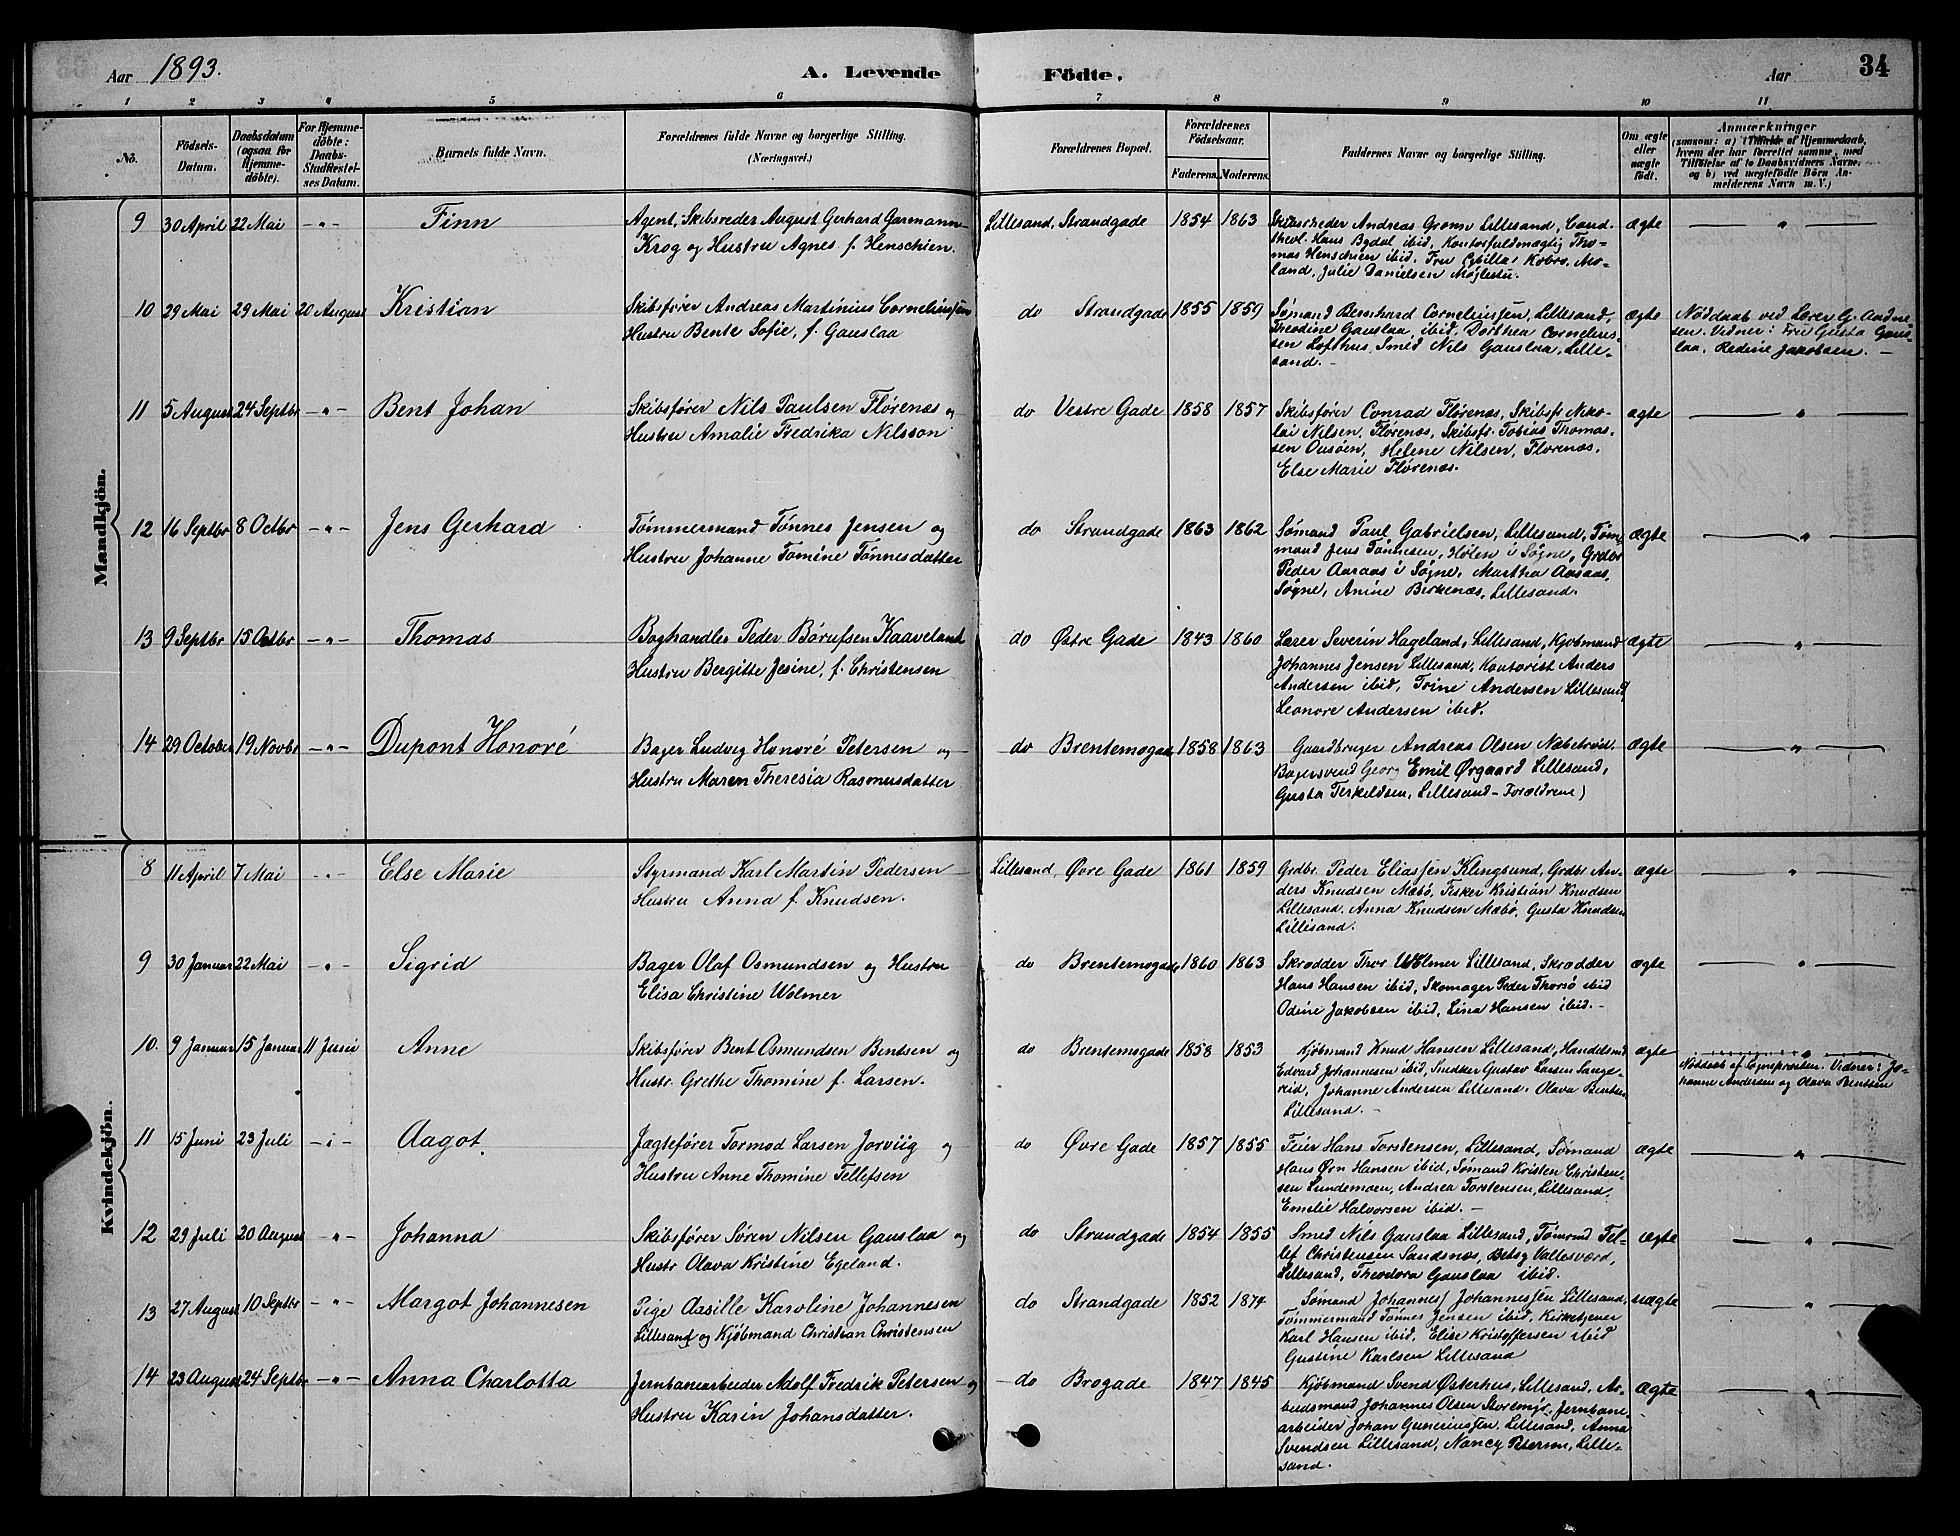 Aar 1893. A. Levende Födte. Aar 34
1 2 3 4 5 6 7 8 9 10 11
No. Födsels-Datum. Daabsdatum (ogsaa for Hjemme-döbte). For Hjemme-döbte: Daabs-Stadfæstel-ses Datum. Barnets fulde Navn. Forældrenes fulde Navne og borgerlige Stilling. (Næringsvei.) Forældrenes Bopæl. Forældrenes Födselsaar. Faderens. Moderens. Faddernes Navne og borgerlige Stilling. Om ægte eller uægte født. Anmærkninger
(saasom: a) Tilfælde af Hjemmedaab,
hvem der har forrettet samme, med
Tilføielse af to Daabsvidners Navne,
og b) ved uægtefödte Börn An-
melderens Navn m. V.)
Mandkjön.
9 30 April 22 Mai -"- Finn Agent, Skibsreder August Gerhard Garmann Lillesand, Strandgade 1854 1863 Skibsreder Andreas Grom Lillesand, Cand. ægte "
Krog og Hustru Agnes f. Henschien. theol. Hans Bydal ibid, Kontorfuldmægtig Tho-
mas Henschien ibid. Fru Cybilla Kobro, Mo-
land, Julie Danielsen Møglestu.
10 29 Mai 29 Mai 20 August Kristian Skibsfører Andreas Martinius Corneliussen do Strandgade 1855 1859 Sømand Bernhard Corneliussen, Lillesand, ægte Nøddaab ved Lærer G. Andre
Hustru Bente Sofie, f. Gauslaa Theodine Gauslaa ibid, Dorthea Cornelius- sen. Vidner: Fru Gusta Gaus-
sen Lofthus, Smed Nils Gauslaa, Lille- laa, Redine Jakobsen. -
sand. -
11 5 August 24 Septbr -"- Bent Johan Skibsfører Nils Paulsen Flørenæs og do Vestre Gade 1858 1857 Skibsfører Conrad Flørenæs, Skibsfr. Niko- ægte "
Hustru Amalie Fredrika Nilsson lai Nilsen, Flørenæs, Skibsfr. Tobias Thomas-
sen Ousøen, Helene Nilsen, Florenæs,
Else Marie Flørenæs.
12 16 Septbr 8 Octbr -"- Jens Gerhard Tømmermand Tønnes Jensen og do Strandgade 1863 1862 Sømand Paul Gabrielsen, Lillesand, Tøm- ægte "
Hustru Johanne Tomine Tønnesdatter mand Jens Tønnesen, Holen i Søgne, Grdbr
Peder Aaraas i Søgne, Martha Aaraas,
Søgne, Anine Birkenæs, Lillesand.
13 9 Septbr 15 Octbr -"- Thomas Boghandler Peder Børufsen Kaaveland do Østre Gade 1843 1860 Lærer Severin Hageland, Lillesand, Kjøbmand ægte "
Hustru Bergitte Jesine, f. Christensen Johannes Jensen Lillesand, Kontorist Anders
Andersen ibid, Trine Andersen Lillesand
Leonore Andersen ibid.
14 29 October 19 Novbr -"- Dupont Honoré Bager Ludvig Honoré Petersen og do Brentemogade 1858 1863 Gaardbruger Andreas Olsen Næbetrød. ægte "
Hustru Maren Theresia Rasmusdatter Bagersvend Georg Emil Ørgaard Lillesand,
Gusta Terkeldsen, Lillesand - Forældrene)
Kvindekjön.
8 11 April 7 Mai -"- Else Marie Styrmand Karl Martin Pedersen Lillesand, Øvre Gade 1861 1859 Grdbr. Peder Eliassen Klingsund, Grdbr An- ægte "
Hustru Anna f. Knudsen. ders Knudsen Mæbø, Fisker Kristian Knudsen
Lillesand. Anna Knudsen Mæbø, Gusta Knudsen
Lillesand.
9 30 Januar 22 Mai -"- Sigrid Bager Olaf Osmundsen og Hustru do Brentemogade 1860 1863 Skrædder Thor Wolmer Lillesand, Skrædder ægte "
Elisa Christine Wolmer Hans Hansen ibid, Skomager Peder Thorsø ibid
Odine Jakobsen ibid, Lina Hansen ibid. -
10. 9 Januar 15 Januar 11 Juni Anne Skibsfører Bent Osmundsen Bentsen og do Brentemogade 1858 1853 Kjøbmand Knud Hansen Lillesand, Handelsmd ægte "
Hustr. Grethe Thomine f. Larsen. Edvard Johannesen ibid, Snedker Gustav Larsen Sange- Nøddaab af Sognepresten. Vidner: Jo-
kid, Johanne Andersen Lillesand. Olava Bentsen hanne Andersen og Olava Bentsen
Lillesand. -
11 15 Juni 23 Juli -"- Aagot. Jagtefører Tormod Larsen Jorviig og do Øvre Gade 1857 1855 Feier Hans Torstensen, Lillesand, Sømand ægte "
Hustru Anne Thomine Tellefsen Hans Ørn Hansen ibid, Sømand Kristen Christen-
sen Lundemoen, Andrea Torstensen, Lillesand,
Emelie Halvorsen ibid. -
12 29 Juli 20 August -"- Johanna Skibsfører Søren Nilsen Gauslaa og do Strandgade 1854 1855 Smed Nils Gauslaa Lillesand, Tømrmd Tel- ægte "
Hustr Olava Kristine Egeland. lef Christensen Sandsnæs, Betsy Vallesværd,
Lillesand, Theodora Gauslaa ibid.
13 27 August 10 Septbr -"- Margot Johannesen Pige Aasille Karoline Johannesen do Strandgade 1852 1874 Sømand Johannes Johannessen Lillesand, uægte "
Lillesand og Kjøbmand Christian Christensen Tømmermand Tønnes Jensen ibid, Kirketjener
Karl Hansen ibid, Elise Kristoffersen ibid
Gustine Karlsen Lillesand
14 23 August 24 Septbr -"- Anna Charlotta Jernbanearbeider Adolf Fredrik Petersen og do Brogade 1847 1845 Kjøbmand Svend Østerhus, Lillesand, Ar- ægte "
Hustru Karin Johansdatter. beidsmand Johannes Olsen Storemyr, Jernbane-
arbeider Johan Gunerinssen, Lillesand, Anna
Svendsen Lillesand, Nancy Petersen, Lille-
sand.